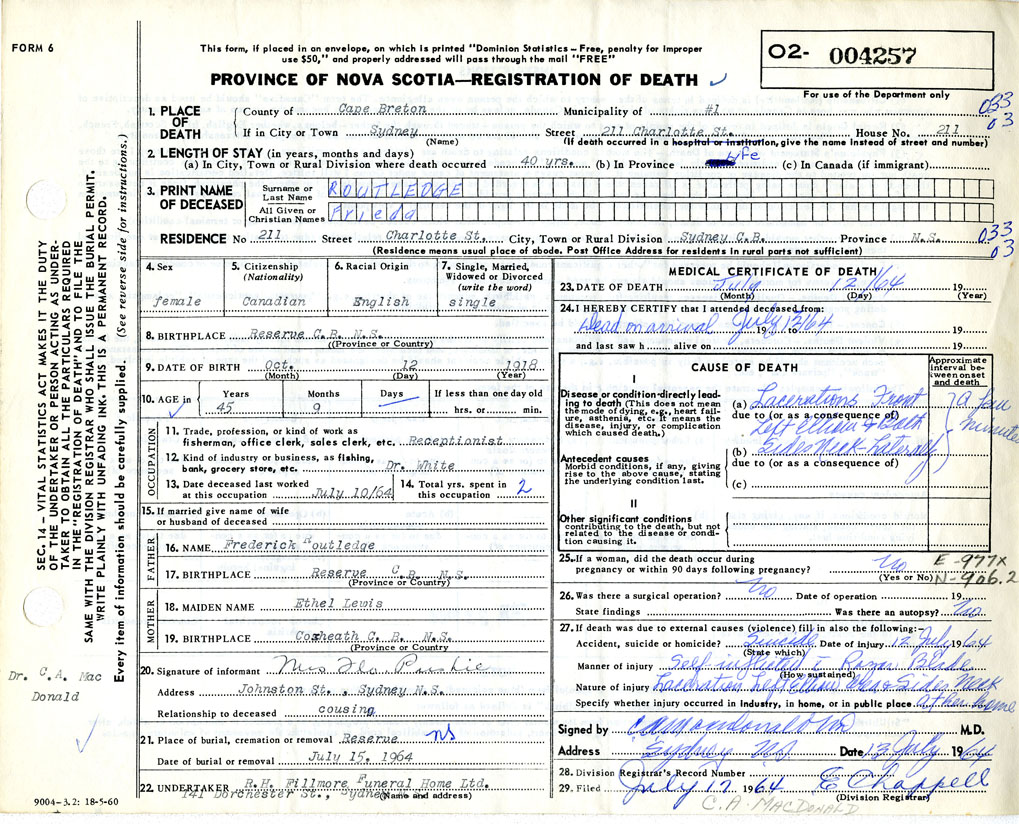 FORM 6
This form, if placed in an envelope, on which is printed "Dominion Statistics – Free, penalty for improper
use $50," and properly addressed will pass through the mail "FREE"
PROVINCE OF NOVA SCOTIA—REGISTRATION OF DEATH ✓
02- 004257
For use of the Department only
1. PLACE OF DEATH { County of Cape Breton Municipality of #1 033
If in City or Town Sydney Street 211 Charlotte St. House No. 211 03
(Name) (If death occurred in a hospital or institution, give the name instead of street and number)
2. LENGTH OF STAY (in years, months and days)
(a) In City, Town or Rural Division where death occurred 40 yrs. (b) In Province Life (c) In Canada (if immigrant)
3. PRINT NAME OF DECEASED
Surname or Last Name ROUTLEDGE
All Given or Christian Names Frieda
RESIDENCE No 211 Street Charlotte St. City, Town or Rural Division Sydney C.B. Province N.S. 033
03
(Residence means usual place of abode. Post Office Address for residents in rural parts not sufficient)
4. Sex female
5. Citizenship (Nationality) Canadian
6. Racial Origin English
7. Single, Married, Widowed or Divorced (write the word) single
8. BIRTHPLACE Reserve C.B. N.S.
(Province or Country)
9. DATE OF BIRTH Oct. 12 1918
(Month) (Day) (Year)
10. AGE in { Years Months Days If less than one day old
✓ 45 9 hrs. or min.
OCCUPATION
11. Trade, profession, or kind of work as
fisherman, office clerk, sales clerk, etc. Receptionist
12. Kind of industry or business, as fishing,
bank, grocery store, etc. Dr. White
13. Date deceased last worked at this occupation July 10/64
14. Total yrs. spent in this occupation 2
15. If married give name of wife
or husband of deceased
FATHER
16. NAME Frederick Routledge
17. BIRTHPLACE Reserve C.B. N.S.
(Province or Country)
MOTHER
18. MAIDEN NAME Ethel Lewis
19. BIRTHPLACE Coxheath C. B. N.S.
(Province or Country)
20. Signature of informant Mrs
Address Johnston St., Sydney N.S.
Relationship to deceased cousing
21. Place of burial, cremation or removal Reserve NS
Date of burial or removal July 15, 1964
22. UNDERTAKER R.H. Fillmore Funeral Home Ltd.
141 Dorchester St., Sydney
(Name and address)
9004-3.2: 18-5-60
MEDICAL CERTIFICATE OF DEATH
23. DATE OF DEATH July 12/64 19
(Month) (Day) (Year)
24. I HEREBY CERTIFY that I attended deceased from:
Dead on arrival July 12/64 19 19
and last saw h alive on 19
CAUSE OF DEATH
Approximate interval between onset and death
I
Disease or condition directly leading to death (This does not mean the mode of dying, e.g., heart failure, asthenia, etc. It means the disease, injury, or complication which caused death.)
(a) Lacerations Front
due to (or as a consequence of)
Left Elbow & Both
(b) Sides Neck Laterally
due to (or as a consequence of)
(c)
a few minutes
Antecedent causes
Morbid conditions, if any, giving rise to the above cause, stating the underlying condition last.
II
Other significant conditions
contributing to the death, but not related to the disease or condition causing it.
25. If a woman, did the death occur during
pregnancy or within 90 days following pregnancy? No
(Yes or No)
E-977X
N-906.2
26. Was there a surgical operation? No Date of operation 19
State findings Was there an autopsy? No
27. If death was due to external causes (violence) fill in also the following:-
Accident, suicide or homicide? Suicide Date of injury 12 July 1964
(State which)
Manner of injury Self inflicted c Razor Blade
(How sustained)
Nature of injury Laceration Left Elbow Sides Neck
Specify whether injury occurred in industry, in home, or in public place at her home
Signed by CAMacDonald MD M.D.
Address Sydney NS Date 13 July 1964
28. Division Registrar's Record Number
29. Filed July 17 1964 E Chappell
(Division Registrar)
C.A. MACDONALD
SEC. 14 – VITAL STATISTICS ACT MAKES IT THE DUTY
OF THE UNDERTAKER OR PERSON ACTING AS UNDER-
TAKER TO OBTAIN ALL THE PARTICULARS REQUIRED
IN THE "REGISTRATION OF DEATH" AND TO FILE THE
SAME WITH THE DIVISION REGISTRAR WHO SHALL ISSUE THE BURIAL PERMIT.
WRITE PLAINLY WITH UNFADING INK. THIS IS A PERMANENT RECORD.
Every item of information should be carefully supplied. (See reverse side for instructions.)
Dr. C.A. Mac
Donald
✓